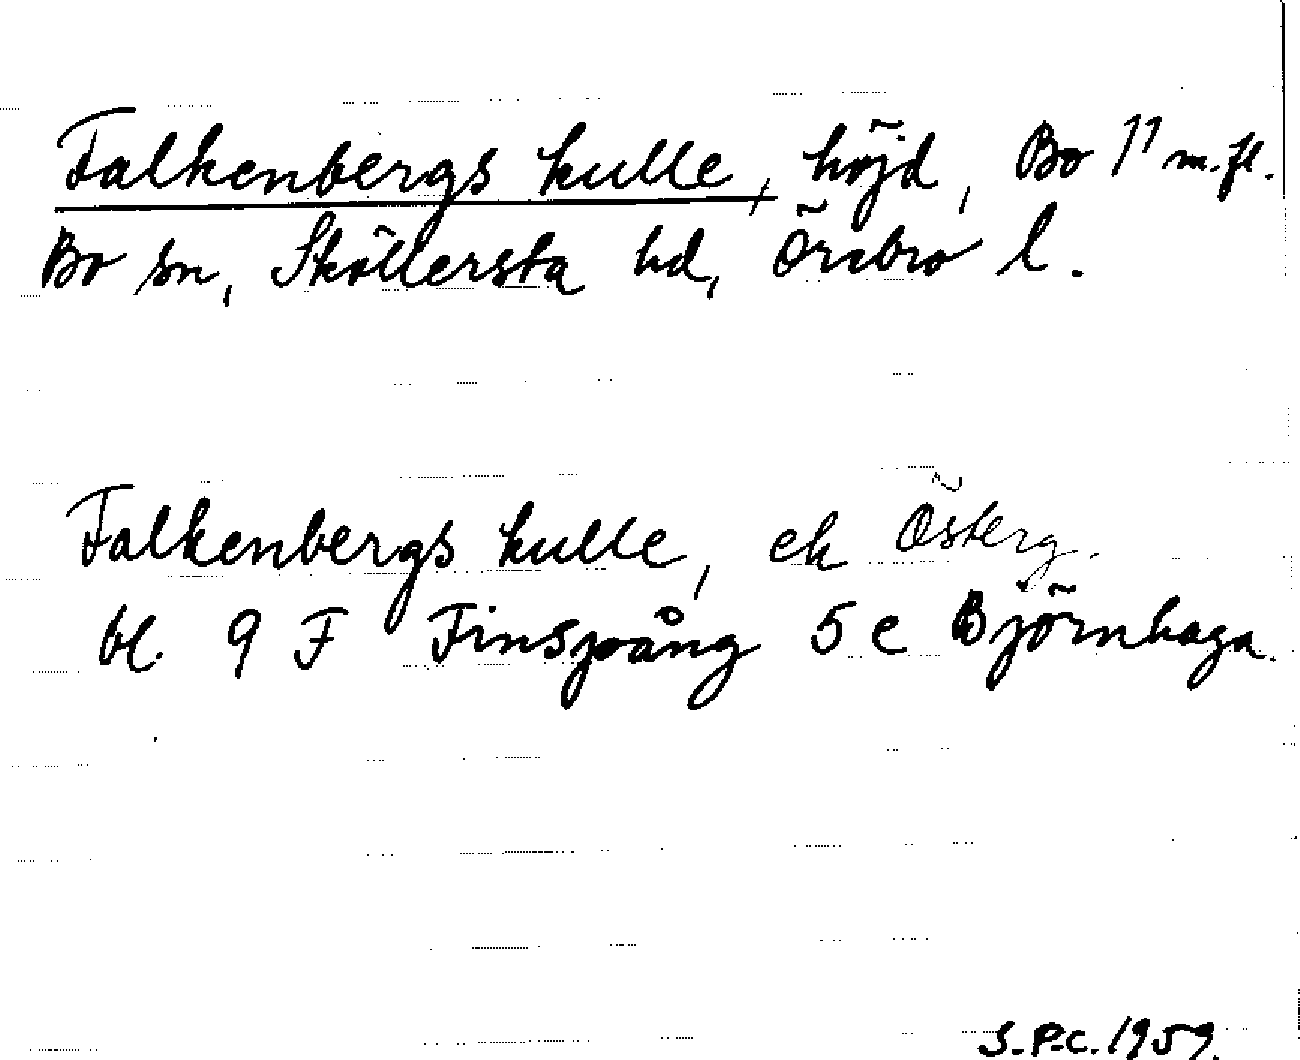 Falkenbergs kulle, höjd, Bo 11 m.fl.
Bo sn, Sköllersta hd, Örebro l.
Falkenbergs kulle, ek Österg.
bl. 9 F Finspång 5 c Björnhaga.
S.P.C. 1959.